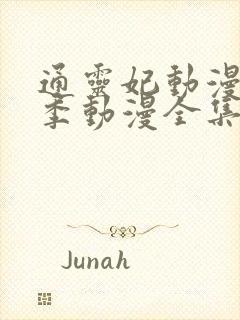 通靈妃動漫
季動漫全集
Junah